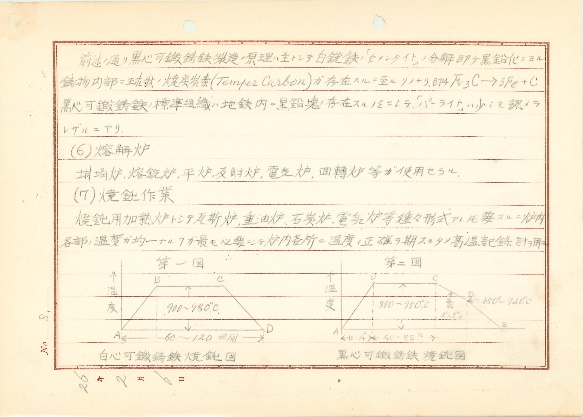 前述ノ通リ黒心可鍛鋳鉄製造ノ原理ハ主トシテ白銑鉄ノ「セメンタイト」ノ分解即チ黒鉛化ニヨル
鋳物内部ニ球状ノ焼戻炭素(Temper Carbon)ガ存在スルニ至ルノナリ,即チ Fe3C→3Fe+C
黒心可鍛鋳鉄ノ標準組織ハ地鉄内ニ黒鉛塊ノ存在スルノミニシテ「パーライト」ハ少シモ認メラ
レザルニアリ.
(6) 熔解炉
坩堝炉,熔銑炉,平炉,反射炉,電気炉,回転炉等ガ使用セラル.
(7) 焼鈍作業
焼鈍用加熱炉トシテ反射炉,重油炉,石炭炉,電気炉等種々形式アルモ要スルニ炉内
各部ノ温度ガ均一ナル事ガ最モ必要ニシテ炉内各所ノ温度ノ正確ヲ期スルタメ高温記録計ヲ用フ
第一図
第二図
↑温度
B
C
900~950℃
A
60~120 時間
D
↑温度
B
C
D
650~720℃
A
E
白心可鍛鋳鉄焼鈍図
黒心可鍛鋳鉄焼鈍図
No. 8.
26年 2月 6日